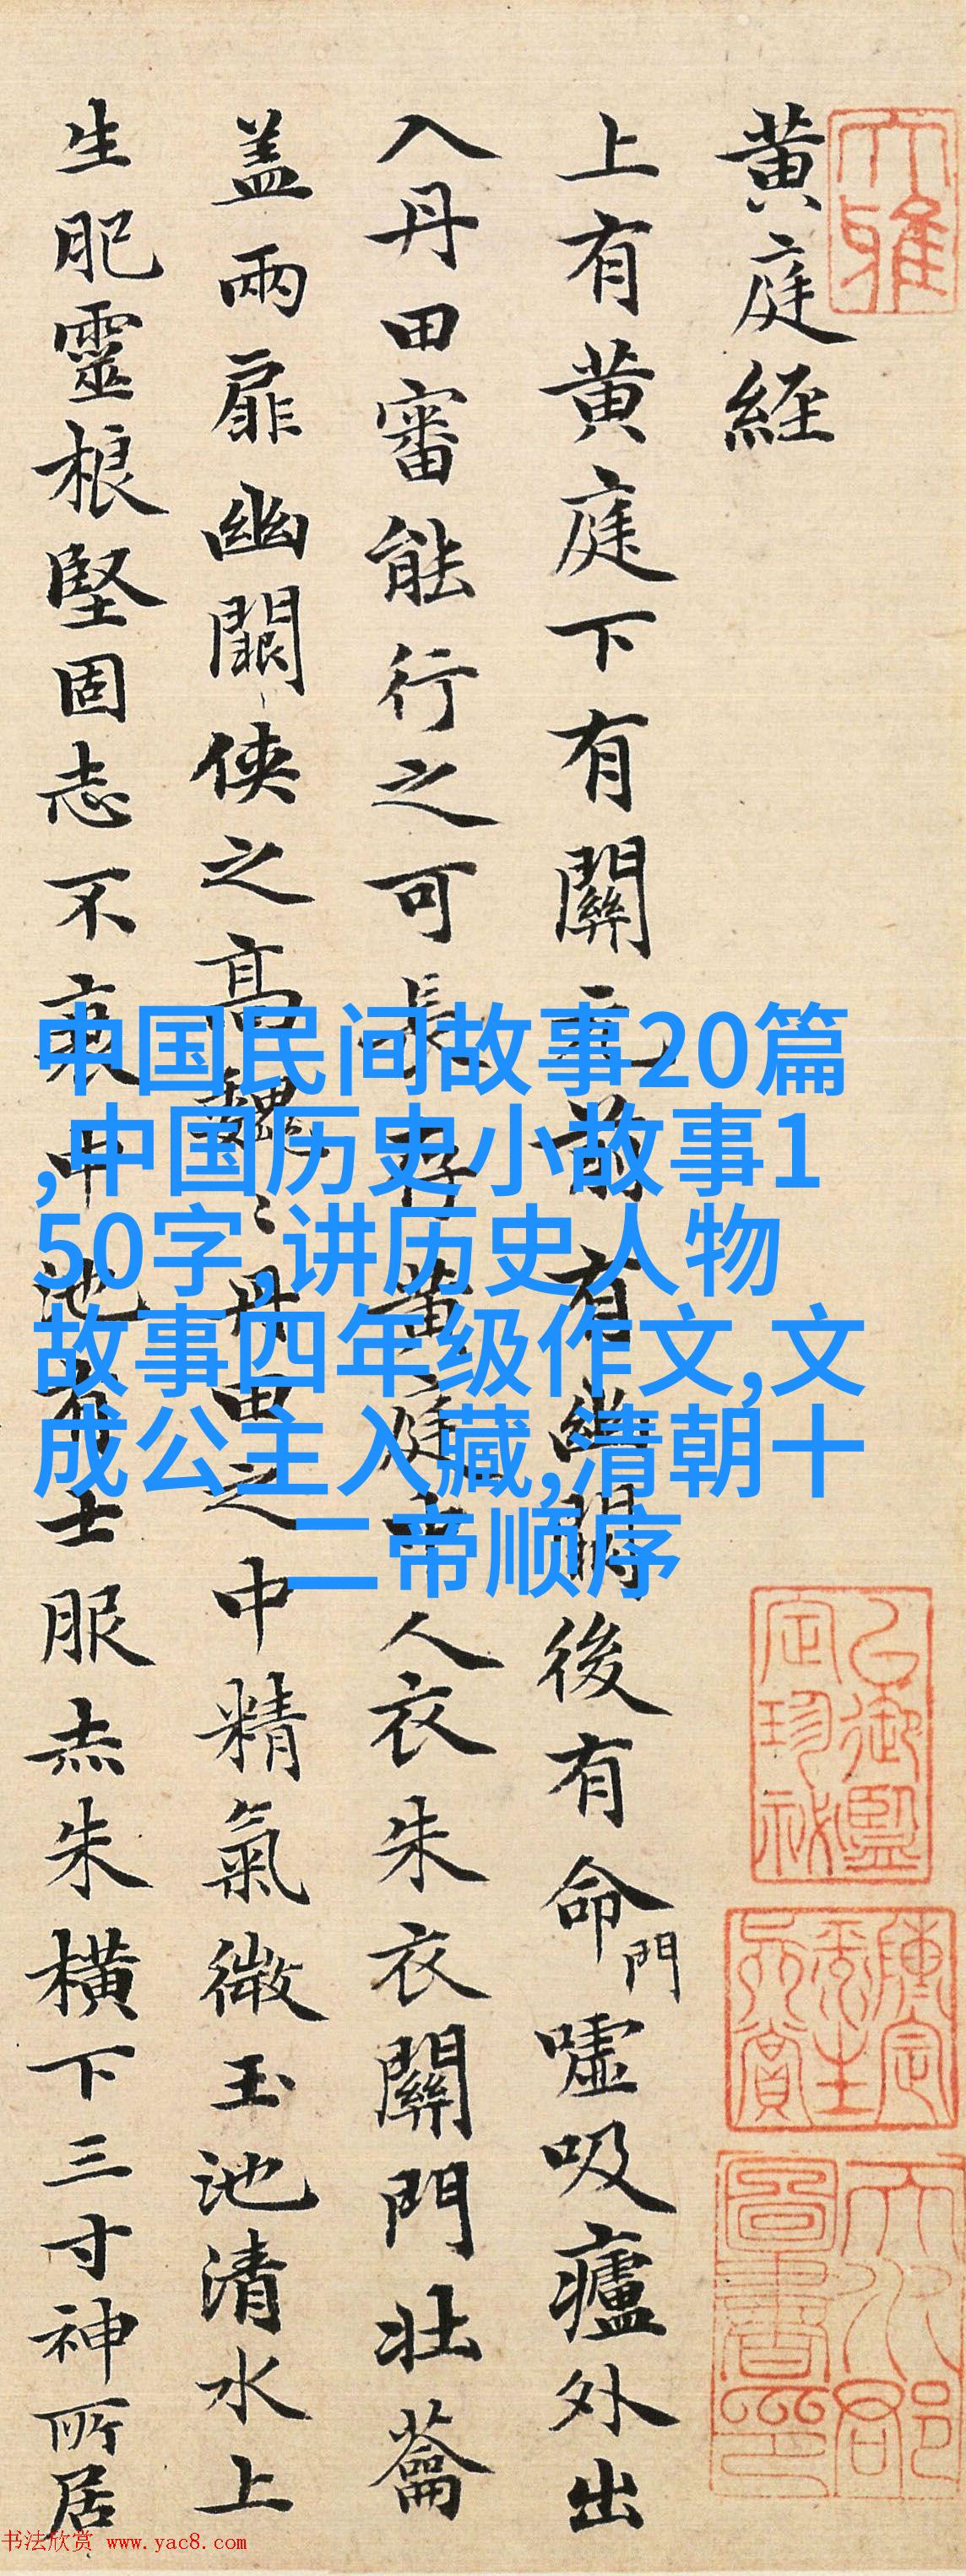 黄庭经
上有黄庭下有關元前有幽闕後有命門嘘吸廬外出
入丹田審能行之可長存黄庭中人衣朱衣關門壯蘥
盖兩扉幽闕侠之高魏丶丹田之中精氣微玉池清水上
生肥靈根堅固志不衰中池有士服赤朱横下三寸神所居
大雅
中国民间故事20篇
,中国历史小故事1
50字,讲历史人物
故事四年级作文,文
成公主入藏,清朝十
二帝顺序
书法欣赏 www.yac8.com